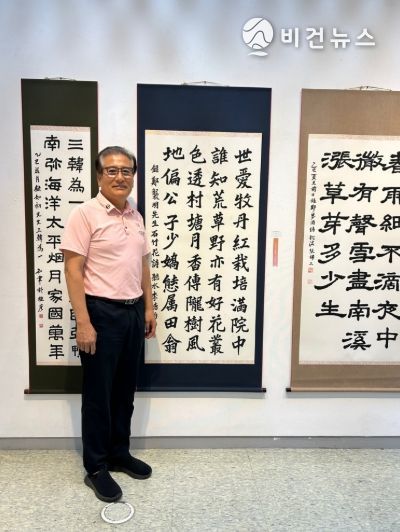 비건뉴스
春雨細不滴夜中
微有聲雪盡南溪
漲草芽多少生
世愛牡丹紅栽培滿院中
誰知荒草野亦有好花叢
色透村塘月香傳隴樹風
地偏公子少嬌態屬田翁
錄鄭襲明先生石竹花詩
三韓為一
南弥海洋太平烟月家國萬年